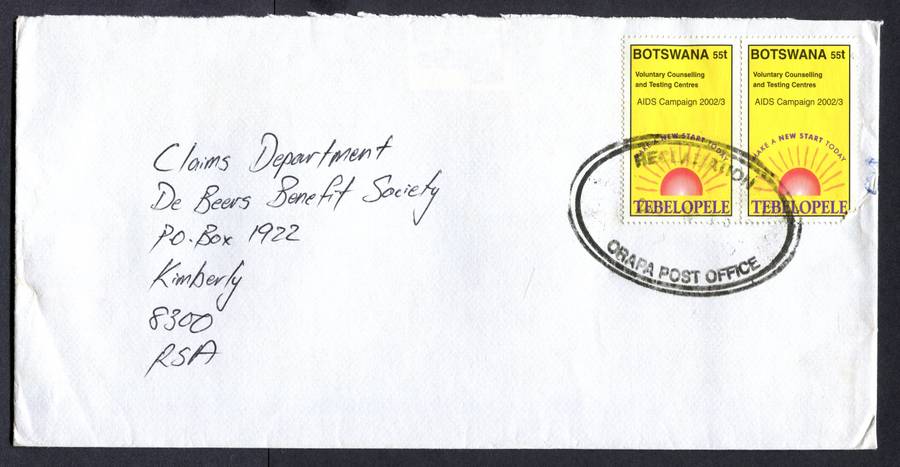 BOTSWANA 55t
Voluntary Counselling
and Testing Centres
AIDS Campaign 2002/3
MAKE A NEW START TODAY
TEBELOPELE
BOTSWANA 55t
Voluntary Counselling
and Testing Centres
AIDS Campaign 2002/3
MAKE A NEW START TODAY
TEBELOPELE
ORAPA POST OFFICE
Claims Department
De Beers Benefit Society
P.O. Box 1922
Kimberly
8300
RSA